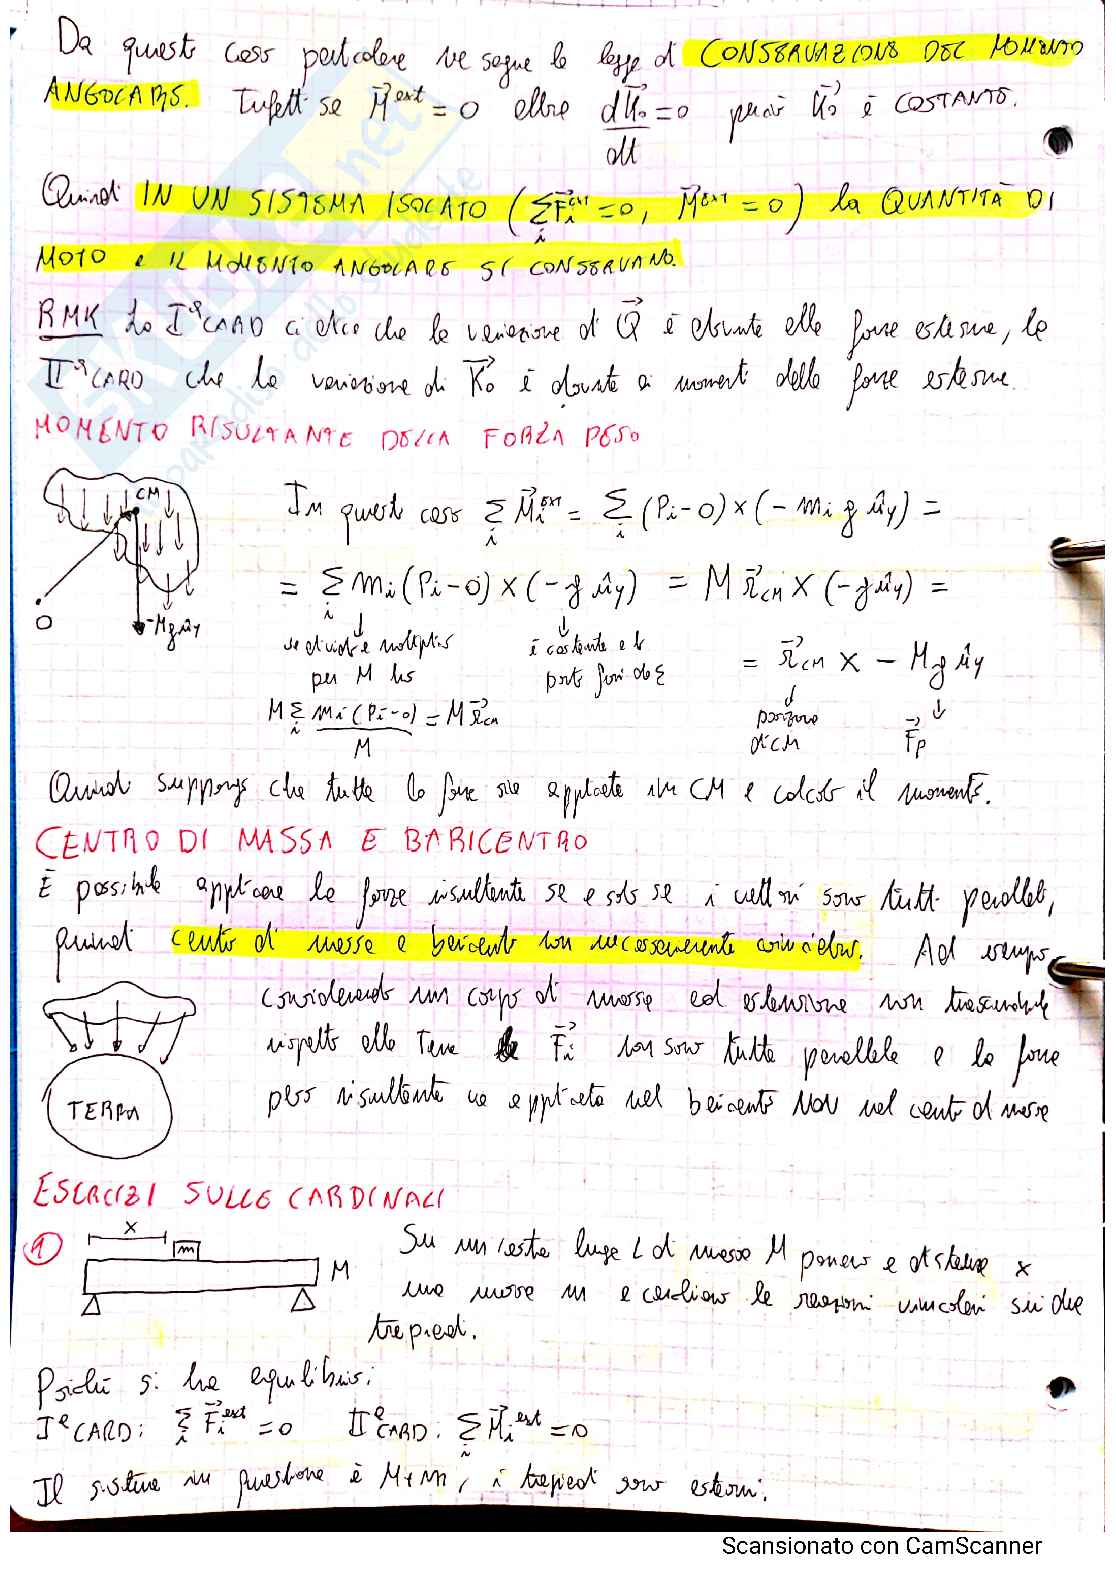 Da questo caso particolare ne segue la legge di CONSERVAZIONE DEL MOMENTO
ANGOLARE. Infatti se M^ext = 0 allora dK₀/dt = 0 perciò K₀ è COSTANTE.
Quindi IN UN SISTEMA ISOLATO (Σ_i F_i^ext = 0, M^ext = 0) la QUANTITÀ DI
MOTO e IL MOMENTO ANGOLARE SI CONSERVANO.
RMK La Iª CARD ci dice che la variazione di Q è dovuta alle forze esterne, la
IIª CARD che la variazione di K₀ è dovuta ai momenti delle forze esterne.
MOMENTO RISULTANTE DELLA FORZA PESO
CM
O
-Mg û_y
In questo caso Σ_i M_i^ext = Σ_i (P_i - O) × (- m_i g û_y) =
= Σ_i m_i (P_i - O) × (- g û_y) = M r_CM × (- g û_y) =
se divido e moltiplico per M ho
M Σ_i m_i (P_i - O) / M = M r_CM
è costante e lo porto fuori da Σ
= r_CM × - M g û_y
posizione di CM
F_p
Quindi suppongo che tutte le forze sia applicate in CM e calcolo il momento.
CENTRO DI MASSA E BARICENTRO
È possibile applicare la forza risultante se e solo se i vettori sono tutti paralleli,
quindi centro di massa e baricentro non necessariamente coincidono. Ad esempio
considerando un corpo di massa ed estensione non trascurabile
rispetto alla Terra le F_i non sono tutte parallele e la forza
peso risultante va applicata nel baricentro NON nel centro di massa
TERRA
ESERCIZI SULLE CARDINALI
1
x
m
M
Su un'asta lunga L di massa M poniamo a distanza x
una massa m e cerchiamo le reazioni vincolari sui due
trepiedi.
Poiché si ha equilibrio:
Iª CARD: Σ_i F_i^ext = 0 IIª CARD: Σ_i M_i^ext = 0
Il sistema in questione è M+m, i trepiedi sono esterni.
Scansionato con CamScanner